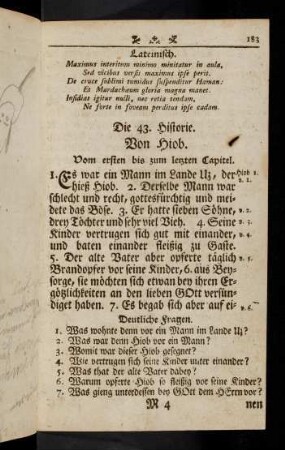 183
Lateinisch.
Maximus interitum minimo minitatur in aula,
Sed vicibus versis maximus ipse perit.
De cruce sublimi tumidus suspenditur Haman:
Et Mardochæum gloria magna manet.
Insidias igitur nulli, nec retia tendam,
Ne forte in foveam perditus ipse cadam.
Die 43. Historie.
Von Hiob.
Vom ersten bis zum letzten Capitel.
1. Es war ein Mann im Lande Uz, der Hiob 1.
hieß Hiob. 2. Derselbe Mann war v. 1.
schlecht und recht, gottesfürchtig und mei-
dete das Böse. 3. Er hatte sieben Söhne, v. 2.
drey Töchter und sehr viel Vieh. 4. Seine v. 3.
Kinder vertrugen sich gut mit einander, v. 4.
und baten einander fleißig zu Gaste.
5. Der alte Vater aber opferte täglich v. 5.
Brandopfer vor seine Kinder, 6. aus Bey-
sorge, sie möchten sich etwan bey ihren Er-
götzlichkeiten an den lieben GOtt versün-
diget haben. 7. Es begab sich aber auf ei- v. 6.
Deutliche Fragen.
1. Was wohnte denn vor ein Mann im Lande Uz?
2. Was war denn Hiob vor ein Mann?
3. Womit war dieser Hiob gesegnet?
4. Wie vertrugen sich seine Kinder unter einander?
5. Was that der alte Vater dabey?
6. Warum opferte Hiob so fleißig vor seine Kinder?
7. Was gieng unterdessen bey GOtt dem HErrn vor?
M 4 nen